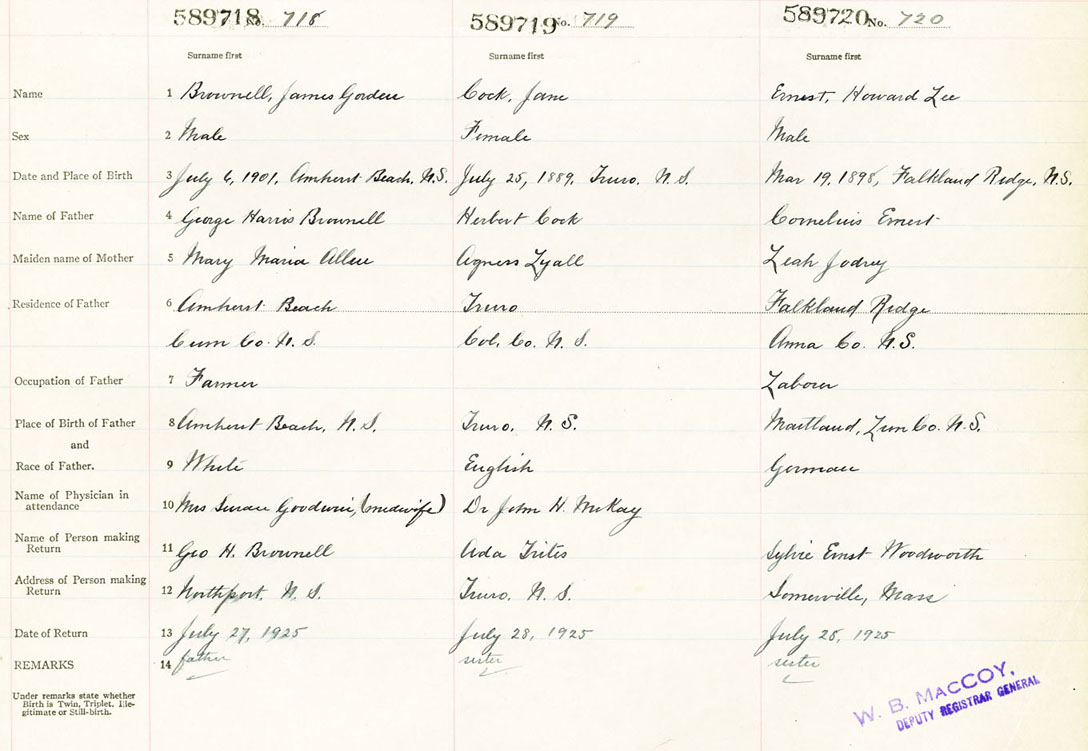 589718 No. 718 589719 No. 719 589720 No. 720
Surname first Surname first Surname first
Name 1 Brownell, James Gorden Cock, Jane Ernest, Howard Lee
Sex 2 Male Female Male
Date and Place of Birth 3 July 6, 1901, Amherst Beach, N.S. July 25, 1889, Truro, N.S. Mar 19, 1898, Falkland Ridge, N.S.
Name of Father 4 George Harris Brownell Herbert Cock Cornelius Ernest
Maiden name of Mother 5 Mary Maria Allen Agness Lyall Leah Jodrey
Residence of Father 6 Amherst Beach Truro Falkland Ridge
Cum Co. N.S. Col. Co. N.S. Anna Co. N.S.
Occupation of Father 7 Farmer Labourer
Place of Birth of Father 8 Amherst Beach, N.S. Truro, N.S. Maitland, Lun Co. N.S.
and
Race of Father. 9 White English German
Name of Physician in
attendance 10 Mrs Goodwin, (midwife) Dr John H. McKay
Name of Person making
Return 11 Geo H. Brownell Ada Trites Sylvie Ernst Woodworth
Address of Person making
Return 12 Northport, N.S. Truro, N.S. Somerville, Mass
Date of Return 13 July 27, 1925 July 28, 1925 July 25, 1925
REMARKS 14 father sister sister
Under remarks state whether
Birth is Twin, Triplet, Ille-
gitimate or Still-birth.
W. B. MACCOY,
DEPUTY REGISTRAR GENERAL